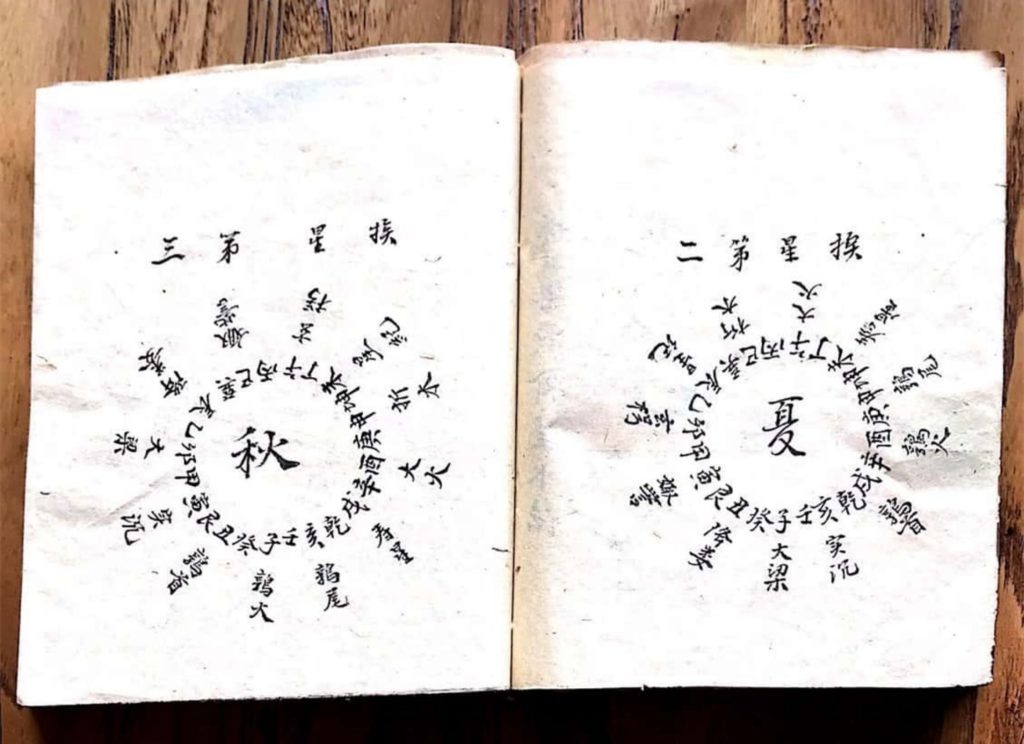 挨星第二
夏
子癸丑艮寅甲卯乙辰巽巳丙午丁未坤申庚酉辛戌乾亥壬
大梁
降娄
娵訾
玄枵
星纪
析木
大火
寿星
鶉尾
鶉火
鶉首
实沉
挨星第三
秋
子癸丑艮寅甲卯乙辰巽巳丙午丁未坤申庚酉辛戌乾亥壬
鶉火
鶉首
实沉
大梁
降娄
娵訾
玄枵
星纪
析木
大火
寿星
鶉尾